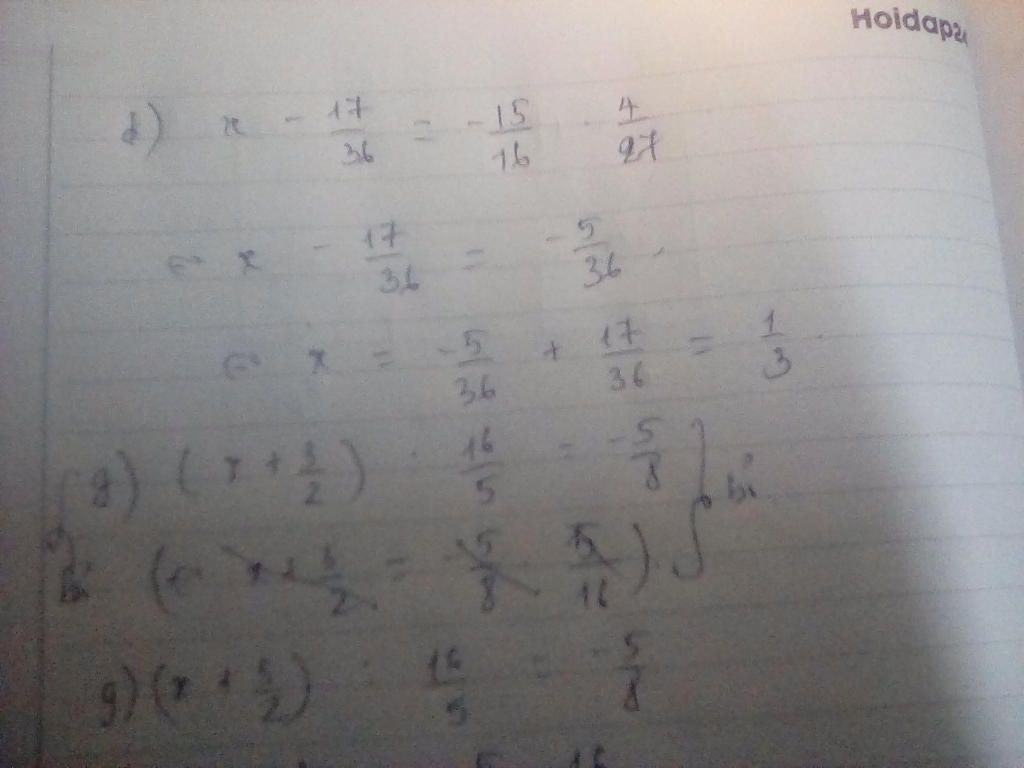 Hoidap24
d) x - 17/36 = - 15/16 . 4/27
⇔ x - 17/36 = - 5/36 .
⇔ x = - 5/36 + 17/36 = 1/3 .
g) (x + 3/2) : 16/5 = - 5/8
(⇔ x + 3/2 = - 5/8 . 5/16) .
g) (x + 3/2) : 16/5 = - 5/8
5 16